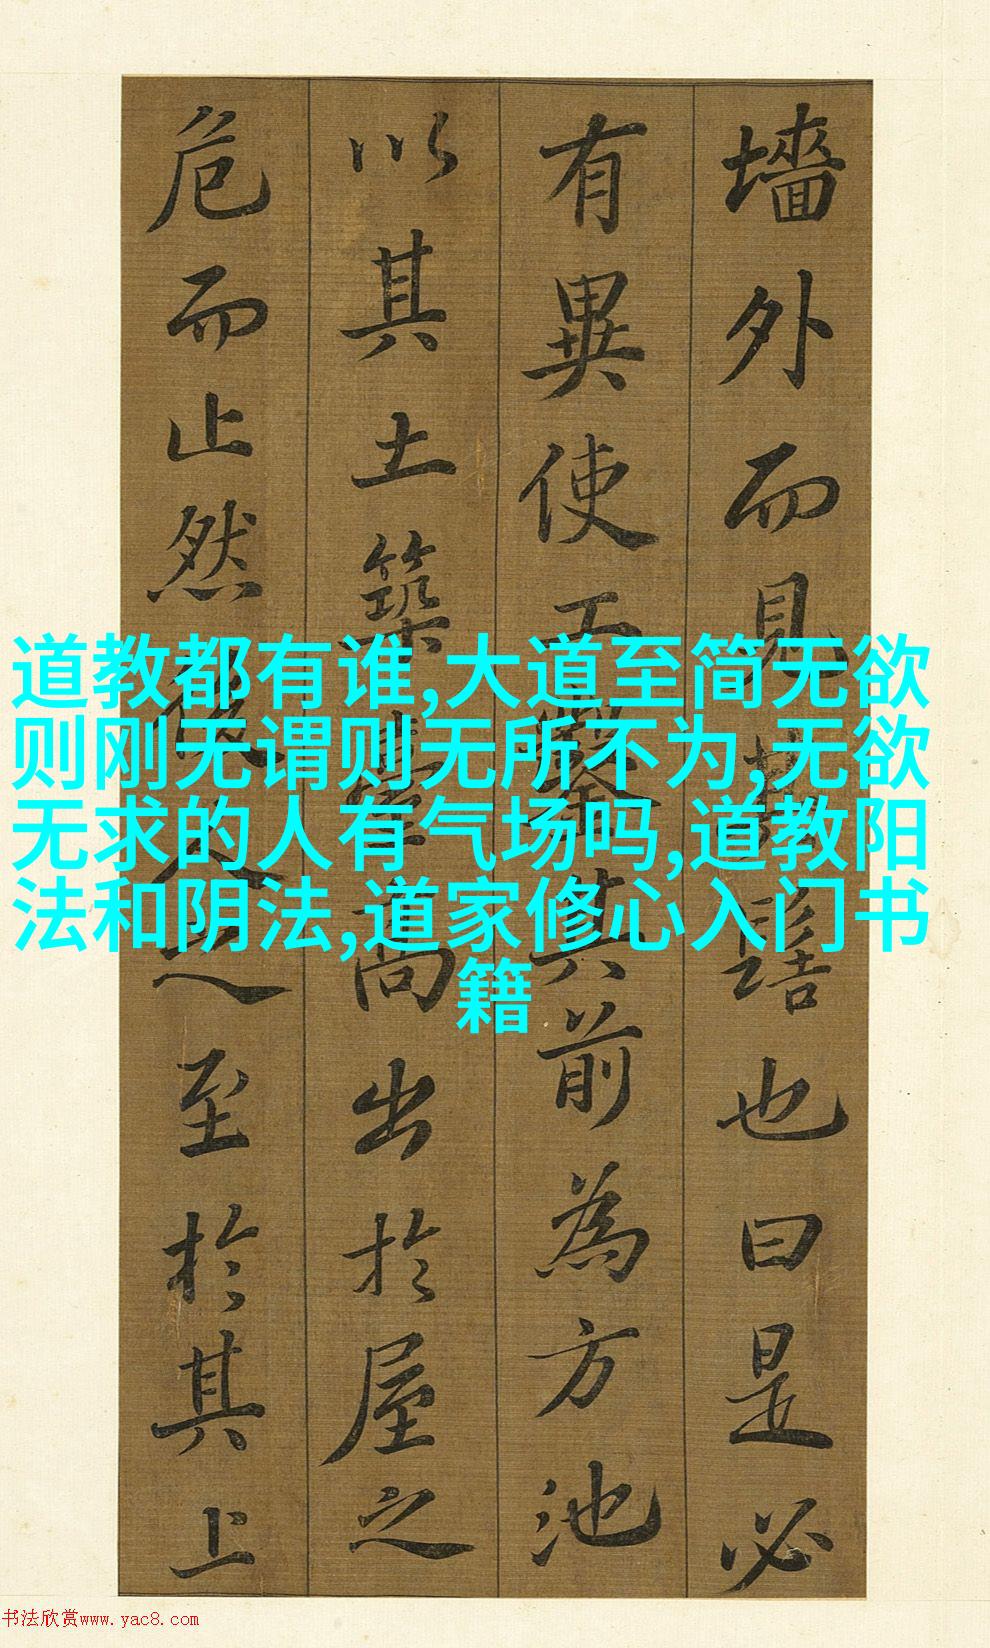 道教都有谁,大道至简无欲
则刚无谓则无所不为,无欲
无求的人有气场吗,道教阳
法和阴法,道家修心入门书
籍
墻外而見其髻也曰是必
有異使工鑿其前為方池
以其土築臺高出於屋之
危而止然後人之至於其上
书法欣赏www.yac8.com